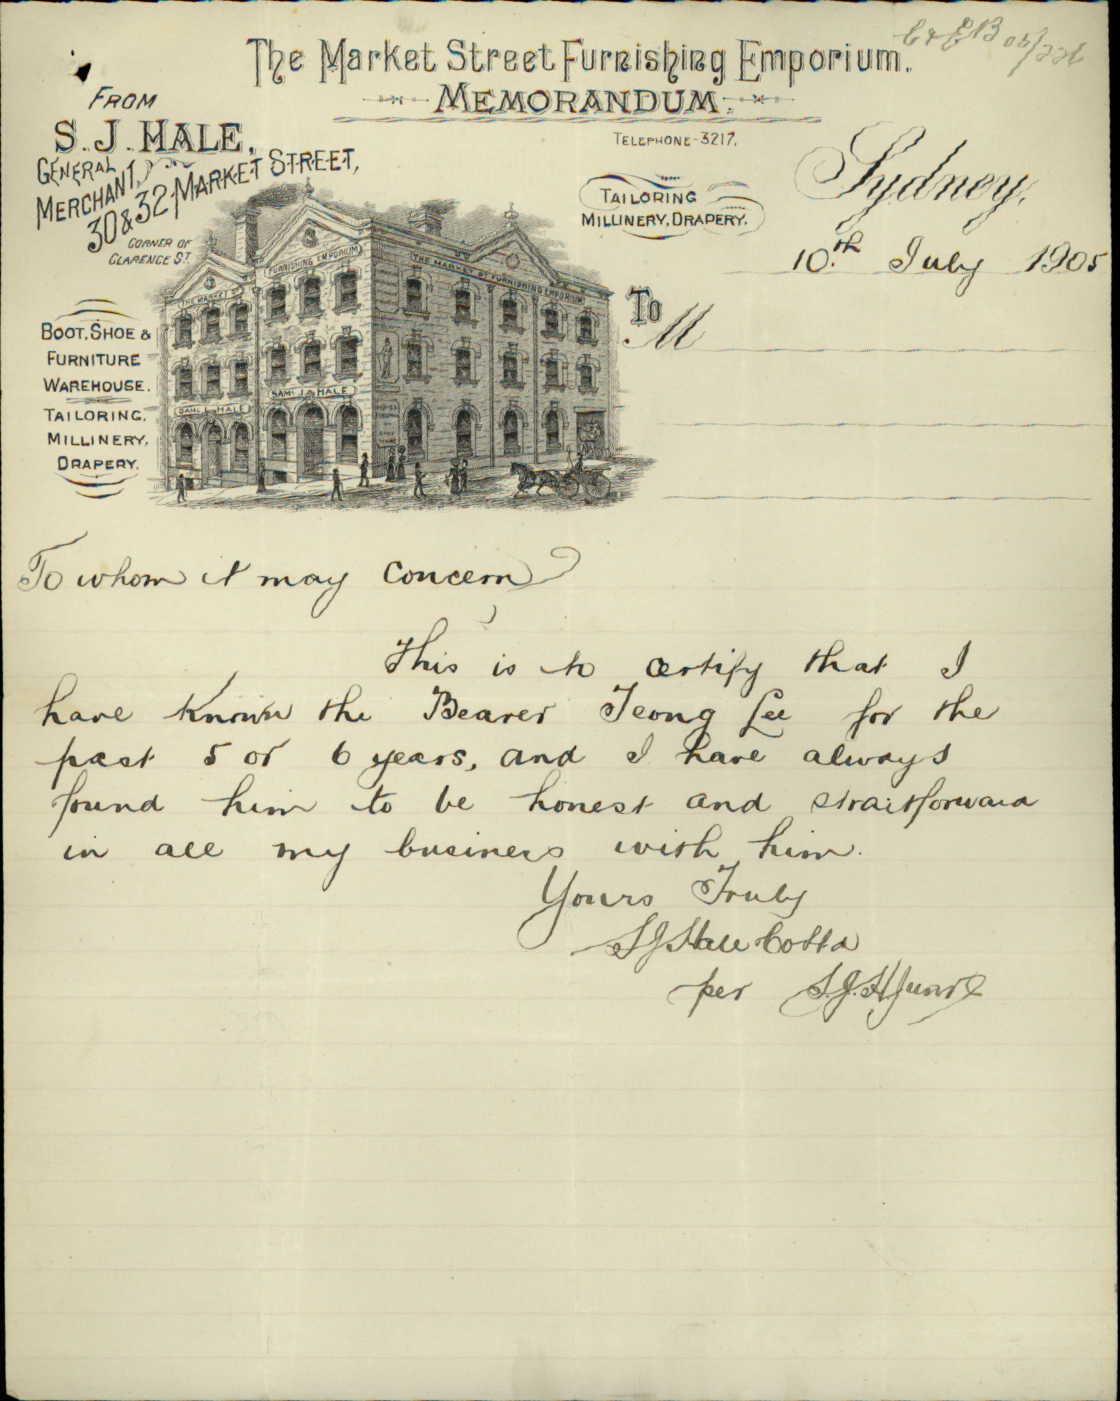 The Market Street Furnishing Emporium.
MEMORANDUM.
FROM
S. J. HALE,
GENERAL
MERCHANT,
30 & 32 MARKET STREET,
CORNER OF
CLARENCE ST.
TELEPHONE-3217.
TAILORING
MILLINERY, DRAPERY.
Sydney,
10.th July 1905
To
M
BOOT, SHOE &
FURNITURE
WAREHOUSE.
TAILORING,
MILLINERY,
DRAPERY.
THE MARKET
FURNISHING EMPORIUM
THE MARKET ST FURNISHING EMPORIUM
SAML J. HALE
SAML J. HALE
To whom it may concern,
This is to certify that I
have known the Bearer Jeong Lee for the
past 5 or 6 years, and I have always
found him to be honest and straitforward
in all my business with him.
Yours Truly
S J Hale
per S. J. H Junr